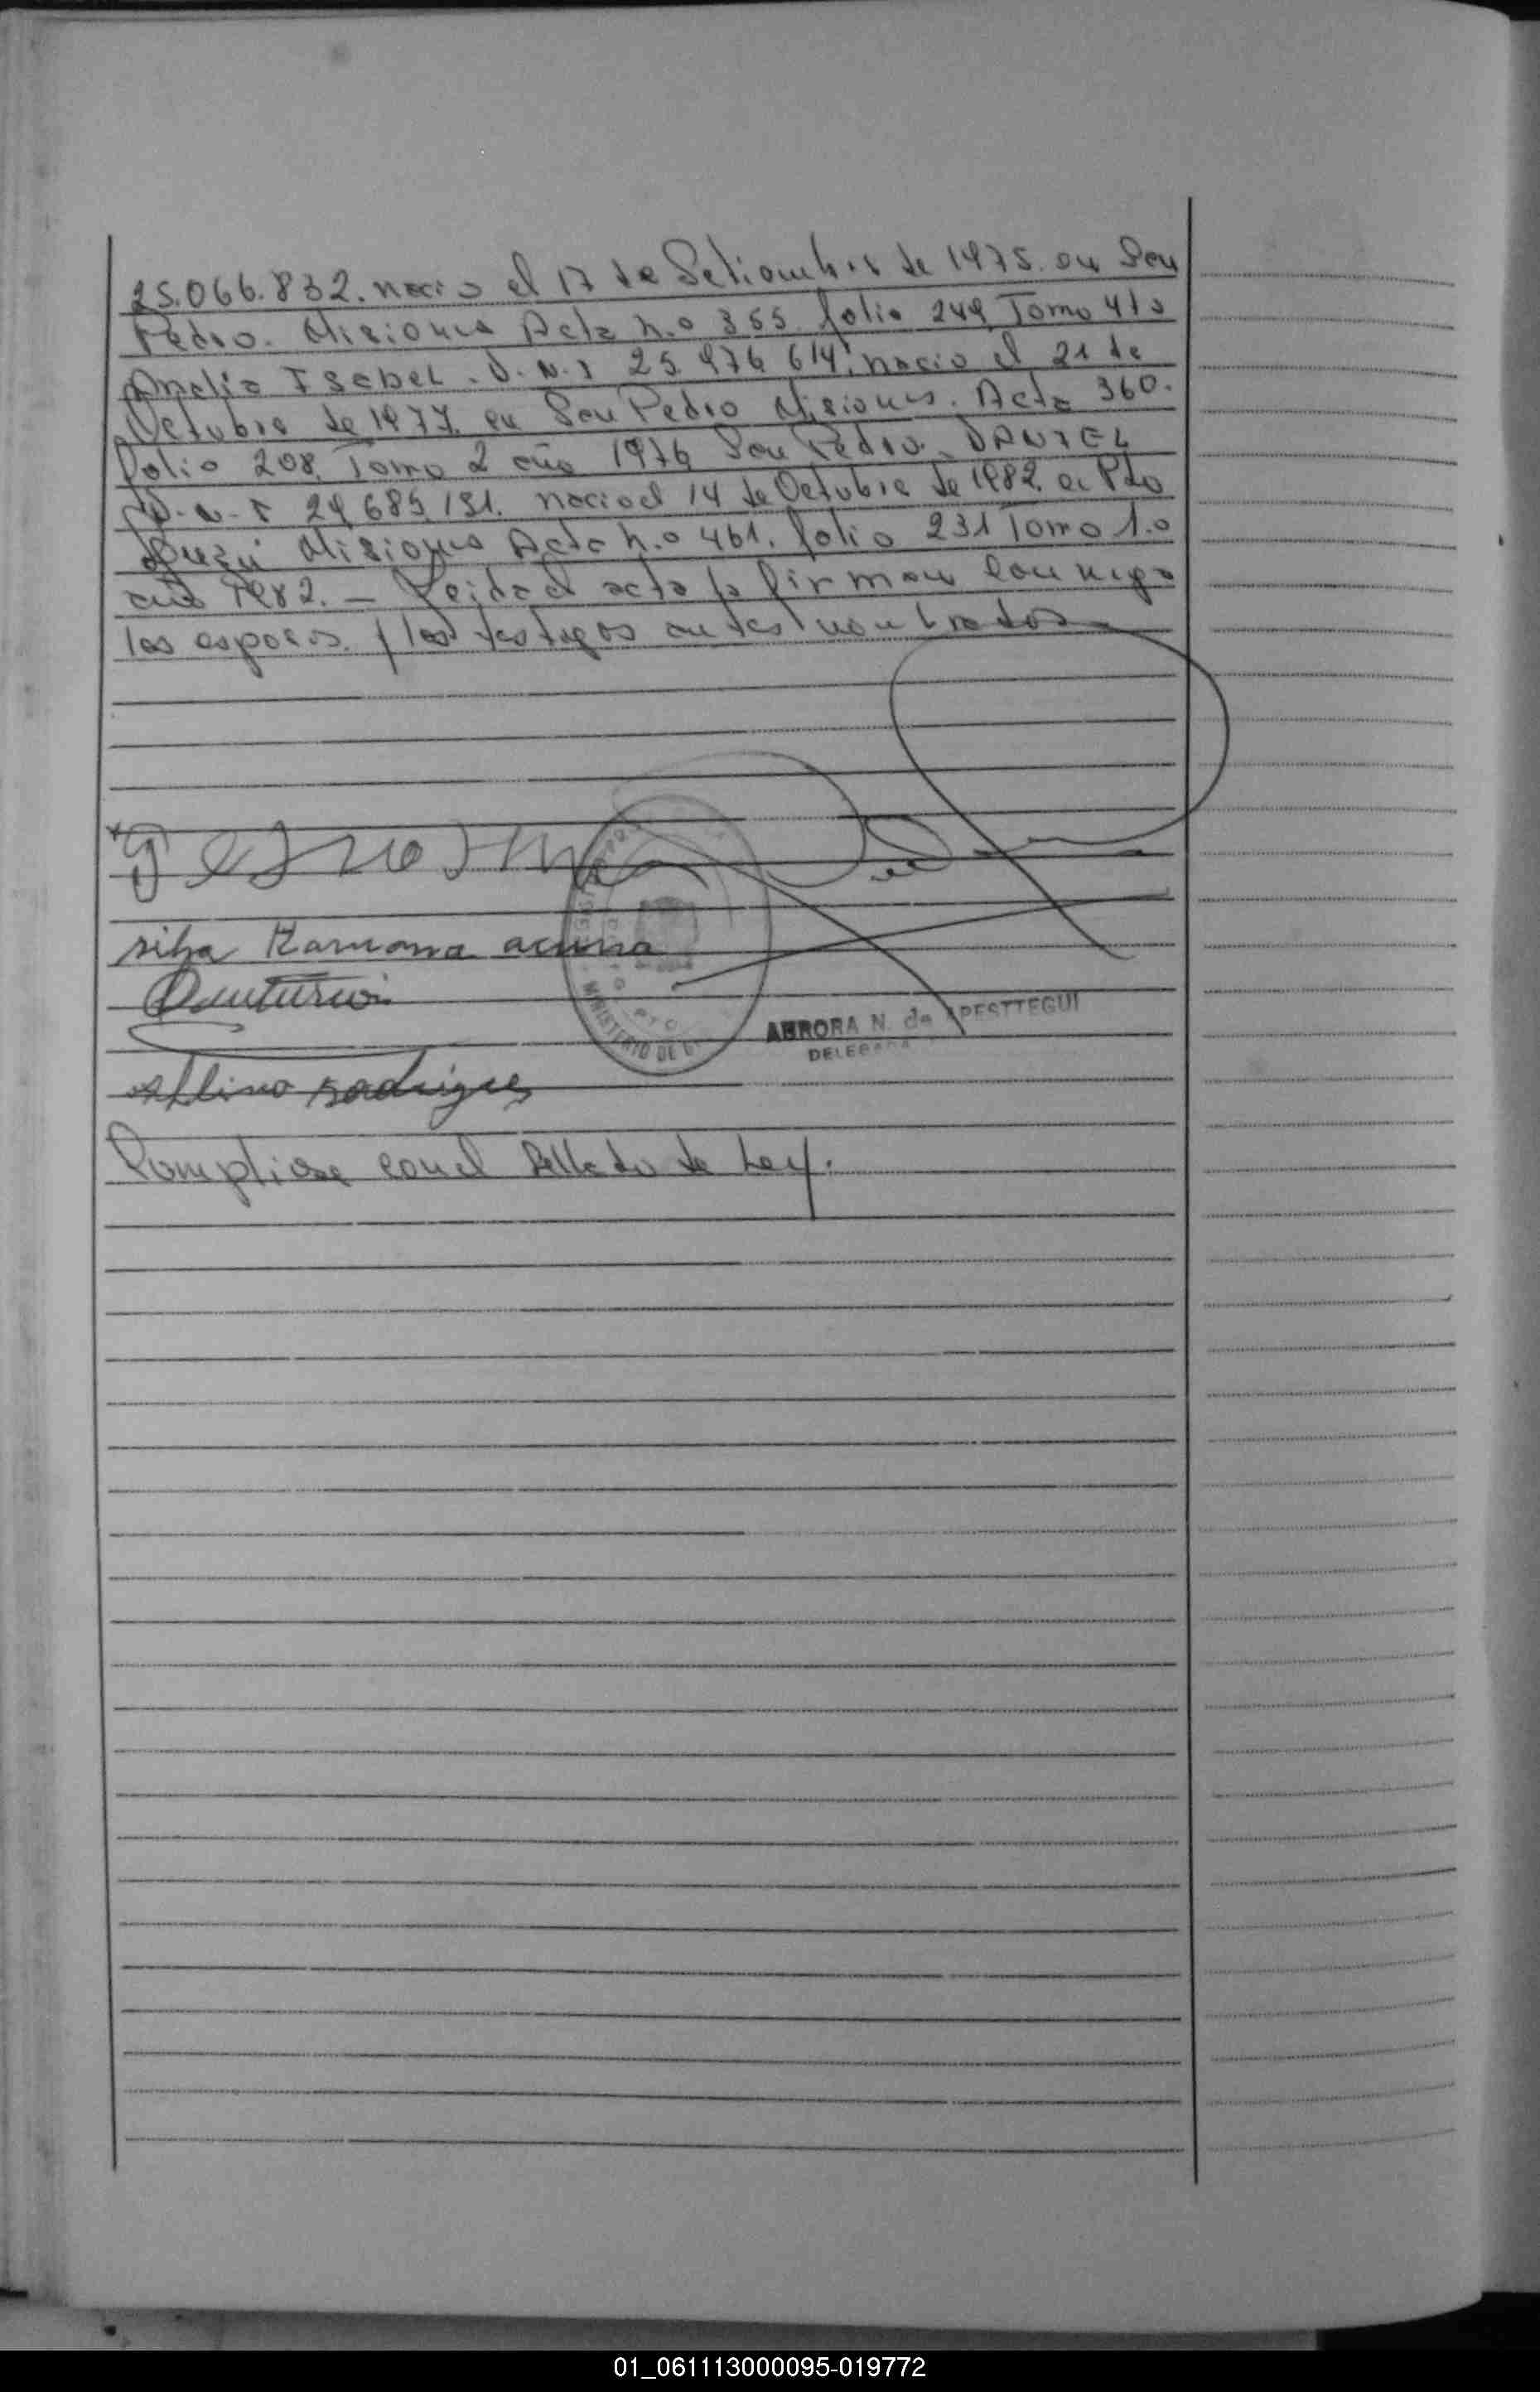 25.066.832. nacio el 17 de Setiembre de 1975. en San
Pedro. Misiones Acta N.o 355. folio 249 Tomo 4to
Analia Isabel. D.N.I 25.976.614. nacio el 21 de
Octubre de 1977. en San Pedro Misiones. Acta 360.
folio 208. Tomo 2 año 1976 San Pedro. DANIEL
D.N.I 29.685.191. nacio el 14 de Octubre de 1982. en Pto
Misiones Acta N.o 461. folio 231 Tomo 1.o
año 1982. — Leida el acta la firman conmigo
los esposos. y los testigos antes nombrados
Ramona acuna
Rodrigues
MINISTERIO DE
AURORA N. de APESTTEGUI
DELEGADA
Cumpliose con el Sellado de Ley.
01_061113000095-019772